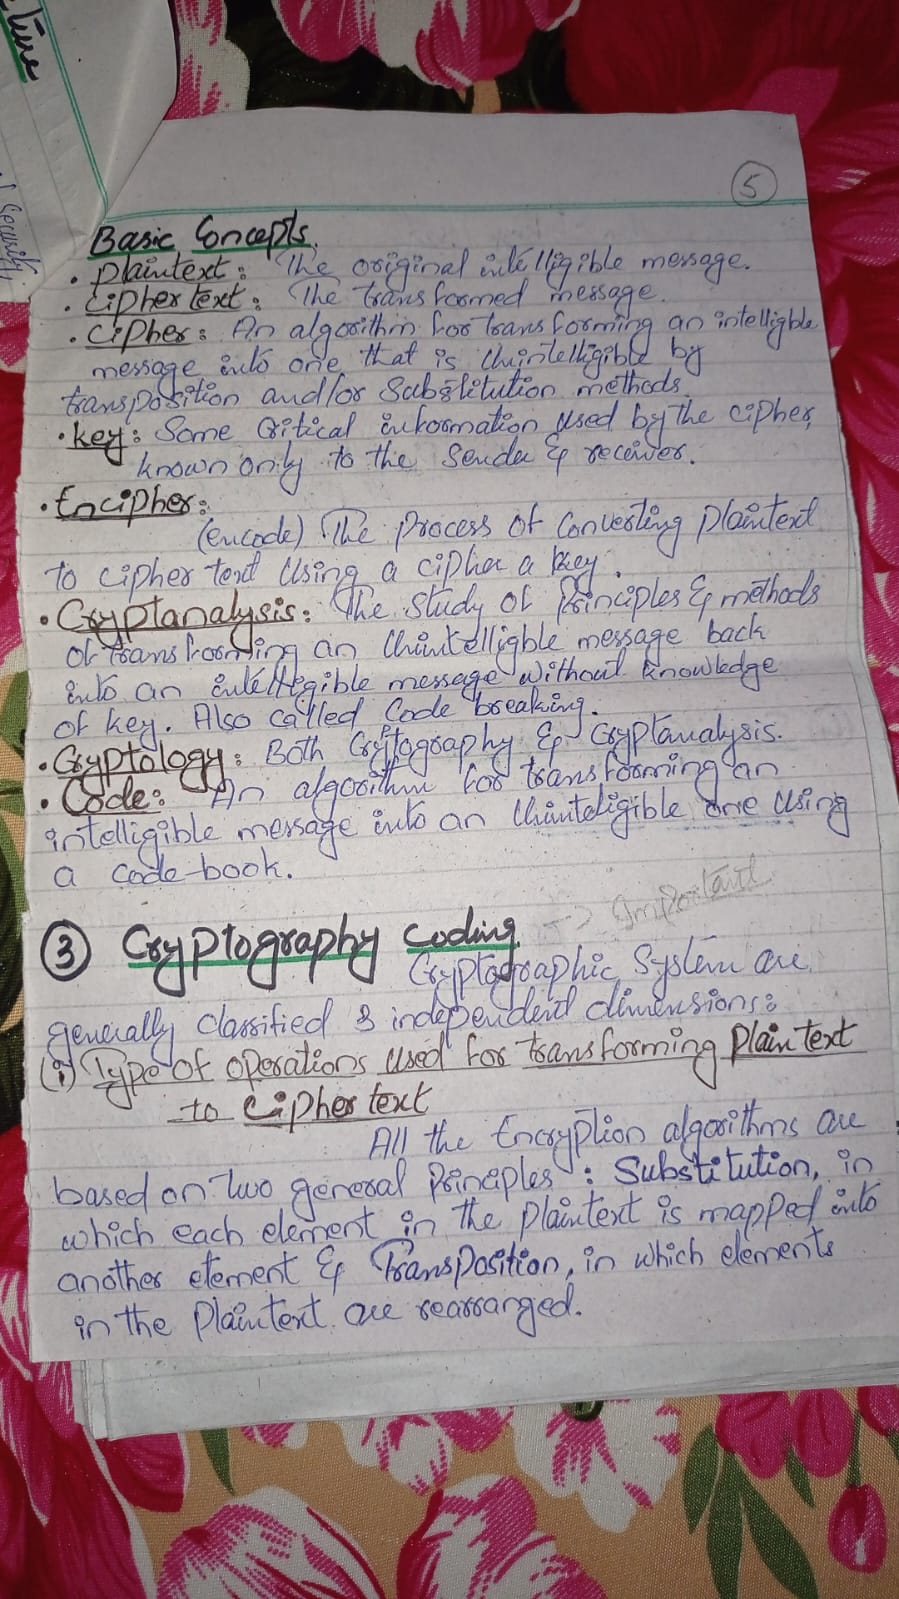 ture
of Security.
5
Basic Concepts.
• Plaintext: The original intelligible message.
• Ciphertext: The transformed message.
• Cipher: An algorithm for transforming an intelligble
message into one that is Unintelligible by
transposition and/or Substitution methods.
• key: Some Critical information used by the cipher,
known only to the Sender & receiver.
• Encipher:
(encode) The Process of Converting Plaintext
to cipher text Using a cipher a key.
• Cryptanalysis: The study of Principles & methods
of transforming an Unintelligble message back
into an intellegible message without knowledge
of key. Also called Code breaking.
• Cryptology: Both Cryptography & Cryptanalysis.
• Code: An algorithm for transforming an
intelligible message into an Uninteligible one Using
a code-book.
→ Important
③ Cryptography Coding
Cryptographic System are
generally classified 3 independent dimensions:
(i) Type of operations used for transforming Plain text
to Cipher text
All the Encryption algorithms are
based on two general Principles: Substitution, in
which each element in the Plaintext is mapped into
another element & Transposition, in which elements
in the Plaintext are rearranged.